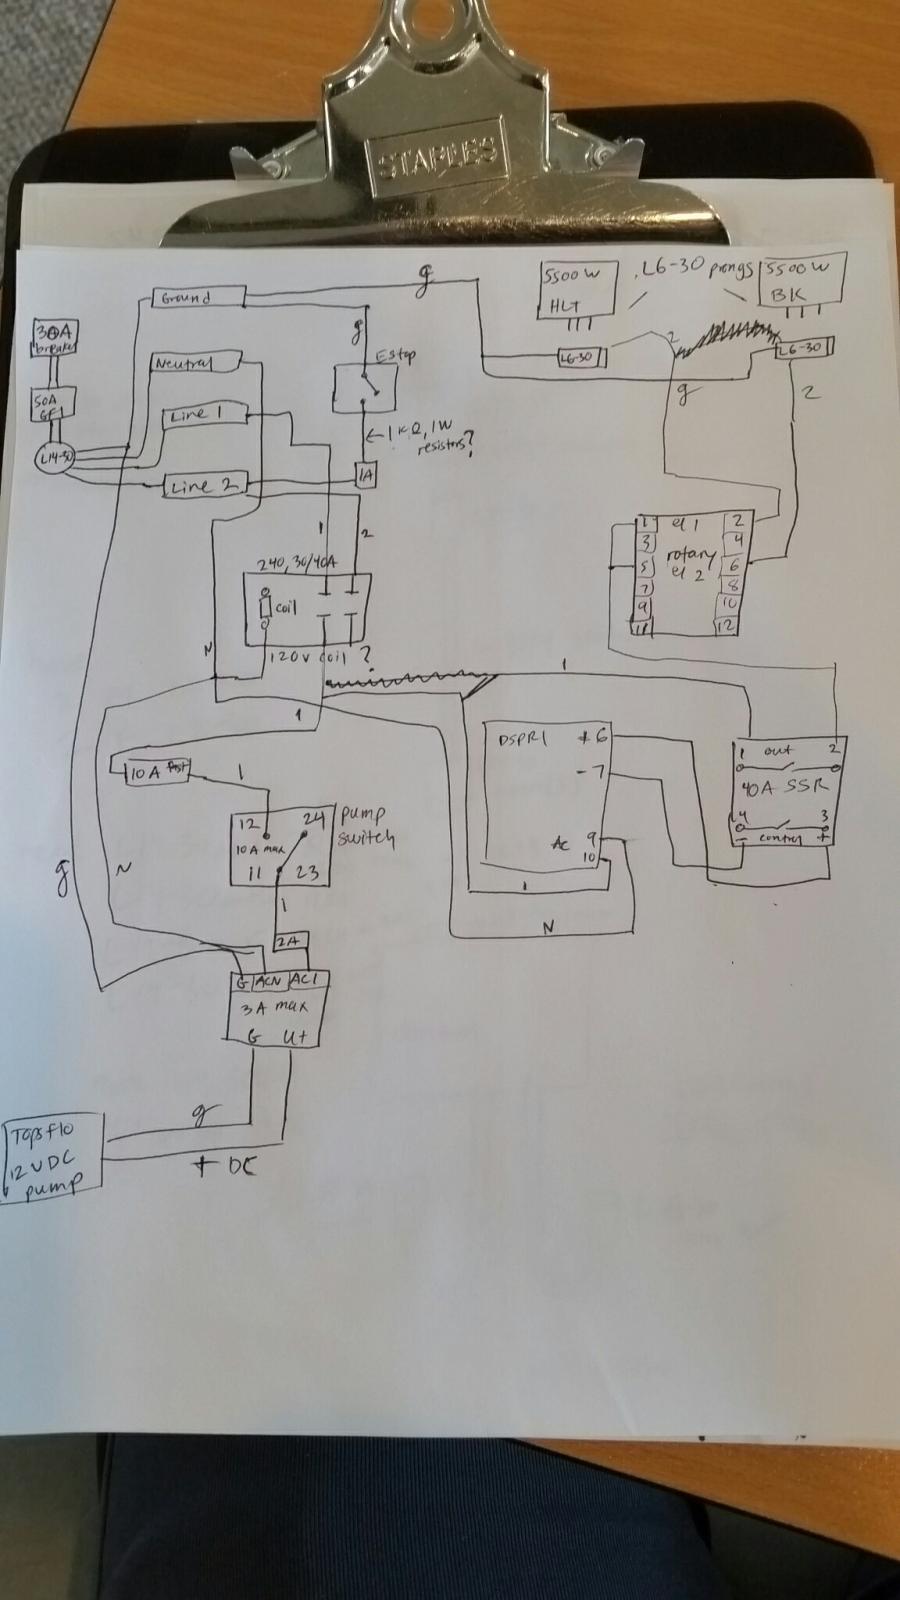 STAPLES
Ground
g
5500W
HLT
L6-30 prongs
5500W
BK
30A
breaker
Neutral
g
E Stop
L6-30
2
L6-30
50A
GFI
Line 1
g
2
L14-30
← 1KΩ, 1W
resistors?
1A
Line 2
1
2
240, 30/40A
coil
120v coil ?
N
1 el 1 2
3 4
rotary
5 el 2 6
7 8
9 10
11 12
1
1
DSPR1 + 6
- 7
AC 9
10
1
N
1 out 2
40A SSR
4 3
- control +
10A Fast
1
12 24
10A max
11 23
pump
switch
g
N
1
2A
G ACN AC1
3A max
G V+
g
+ DC
Topsflo
12VDC
pump